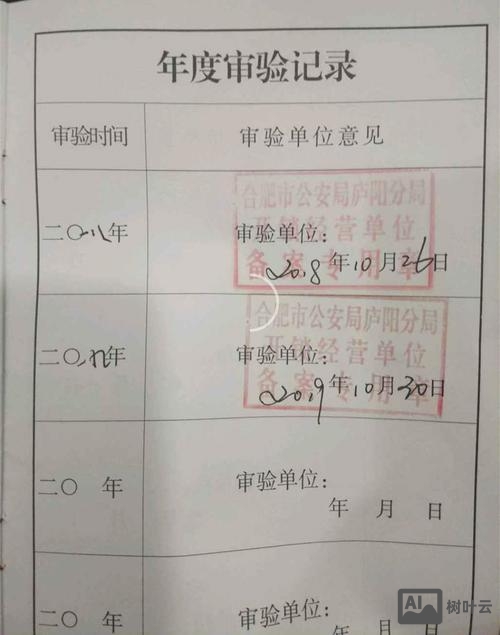 年度审验记录
审验时间 审验单位意见
二〇一八年 审验单位:
合肥市公安局庐阳分局
开锁经营单位
备案专用章
2018年10月26日
二〇一九年 审验单位:
合肥市公安局庐阳分局
开锁经营单位
备案专用章
2019年10月30日
二〇 年 审验单位:
年 月 日
二〇 年 审验单位:
年 月 日
AI 树叶云